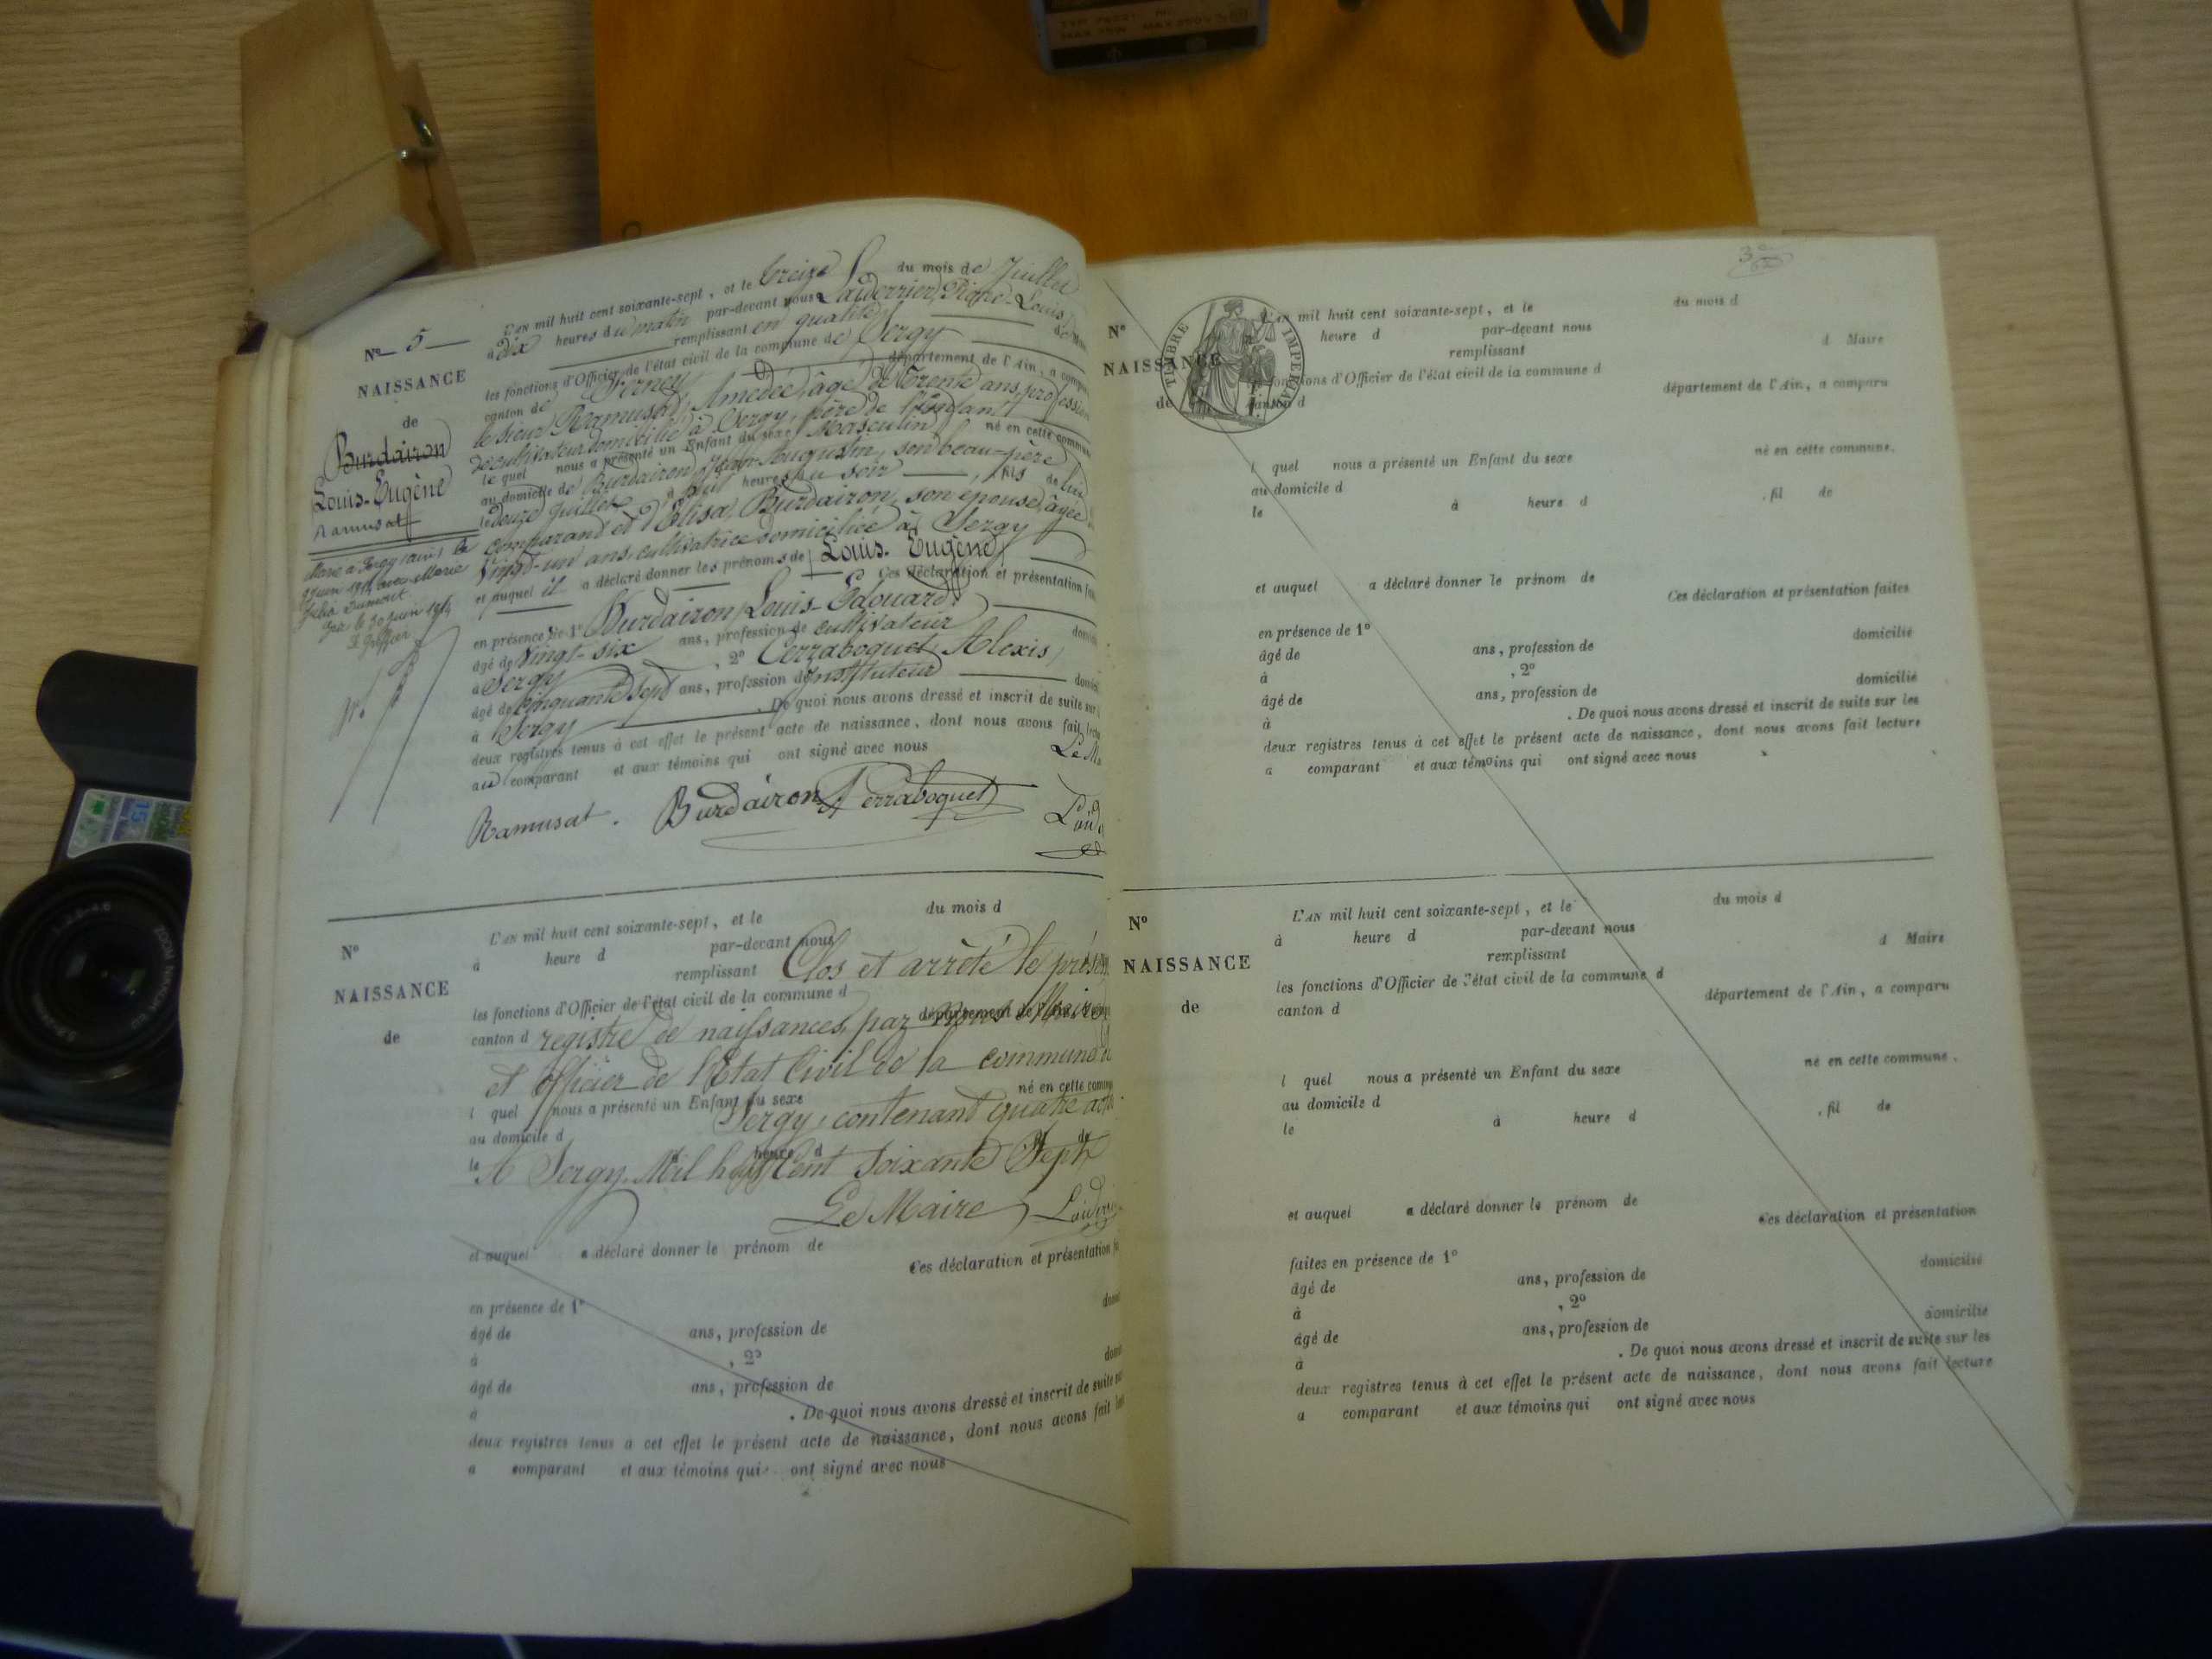 N° 5
NAISSANCE
de
Burdairon
Louis-Eugène
Ramusat
Marié à Sergy (Ain) le
9 juin 1914 avec Marie
Julia Dumont
Gex le 30 juin 1914
Le Greffier
L'AN mil huit cent soixante-sept, et le treize du mois de Juillet
à dix heures du matin par-devant nous Laiderrier, Pierre-Louis
remplissant en qualité
les fonctions d'Officier de l'état civil de la commune de Sergy
canton de Ferney département de l'Ain, a compa
le sieur Ramusat, Amédée, âgé de Trente ans, profession
de cultivateur domicilié à Sergy, père de l'Enfant
le quel nous a présenté un Enfant du sexe Masculin né en cette commun
au domicile de Burdairon, Jean Augustin, son beau-père,
le douze Juillet à huit heures du soir, fils de lui
comparant et d'Elisa Burdairon, son épouse, âgée
Vingt-un ans, cultivatrice domiciliée à Sergy
et auquel il a déclaré donner les prénoms de Louis-Eugène
Ces déclaration et présentation fai
en présence de 1° Burdairon, Louis-Edouard
âgé de Vingt-six ans, profession de cultivateur domi
à Sergy, 2° Perraboquet, Alexis,
âgé de Cinquante sept ans, profession d'instituteur domici
à Sergy. De quoi nous avons dressé et inscrit de suite sur
deux registres tenus à cet effet le présent acte de naissance, dont nous avons fait lectu
au comparant et aux témoins qui ont signé avec nous
Le M
Ramusat. Burdairon Perraboquet Laid
N°
NAISSANCE
de
L'AN mil huit cent soixante-sept, et le du mois d
à heure d par-devant nous
remplissant
Clos et arrêté le prése
les fonctions d'Officier de l'état civil de la commune d
canton d département de l'Ain
registre de naissances, par nous Maire
et officier de l'Etat Civil de la commune d
né en cette comm
l quel nous a présenté un Enfant du sexe
Sergy, contenant quatre act
au domicile d
le heure d de
A Sergy, Mil huit Cent Soixante Sept
Le Maire Laiderri
et auquel a déclaré donner le prénom de
Ces déclaration et présentation fa
en présence de 1°
âgé de ans, profession de
à , 2°
âgé de ans, profession de
à . De quoi nous avons dressé et inscrit de suite su
deux registres tenus à cet effet le présent acte de naissance, dont nous avons fait lect
a comparant et aux témoins qui ont signé avec nous
TIMBRE IMPERIAL
N°
NAISSANCE
de
L'AN mil huit cent soixante-sept, et le du mois d
heure d par-devant nous
d Maire
remplissant
fonctions d'Officier de l'état civil de la commune d
canton d département de l'Ain, a comparu
l quel nous a présenté un Enfant du sexe né en cette commune,
au domicile d
le à heure d , fil de
et auquel a déclaré donner le prénom de
Ces déclaration et présentation faites
en présence de 1°
âgé de ans, profession de domicilié
à , 2°
âgé de ans, profession de domicilié
à . De quoi nous avons dressé et inscrit de suite sur les
deux registres tenus à cet effet le présent acte de naissance, dont nous avons fait lecture
a comparant et aux témoins qui ont signé avec nous
N°
NAISSANCE
de
L'AN mil huit cent soixante-sept, et le du mois d
à heure d par-devant nous
d Maire
remplissant
les fonctions d'Officier de l'état civil de la commune d
canton d département de l'Ain, a comparu
l quel nous a présenté un Enfant du sexe né en cette commune,
au domicile d
le à heure d , fil de
et auquel a déclaré donner le prénom de
Ces déclaration et présentation
faites en présence de 1°
âgé de ans, profession de domicilié
à , 2°
âgé de ans, profession de domicilié
à . De quoi nous avons dressé et inscrit de suite sur les
deux registres tenus à cet effet le présent acte de naissance, dont nous avons fait lecture
a comparant et aux témoins qui ont signé avec nous